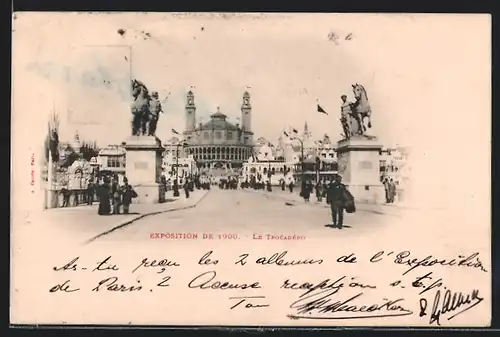 EXPOSITION DE 1900. - LE TROCADÉRO
As-tu reçu les 2 albums de l'Exposition
de Paris? Accuse réception s.t.p.
Ton